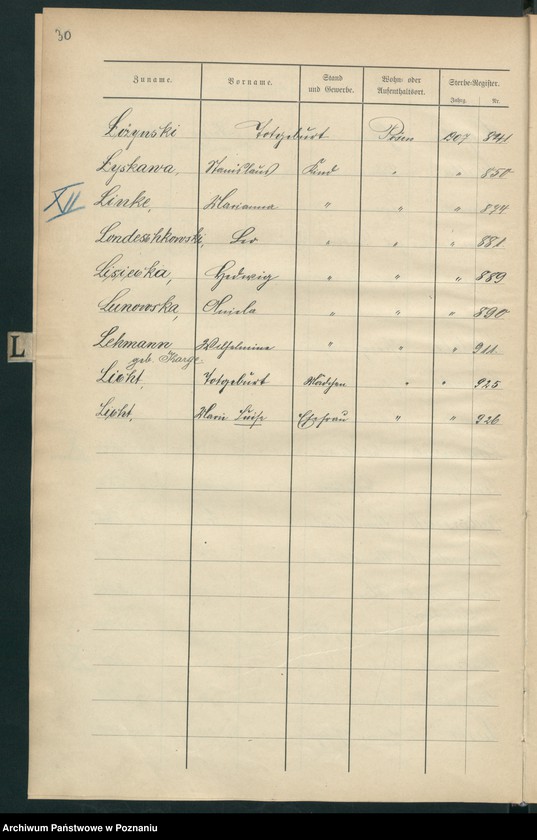 30
Zuname. Vorname. Stand und Gewerbe. Wohn- oder Aufenthaltsort. Sterbe-Register.
Jahrg. Nr.
Lożynski Totgeburt Posen 1907 841
Łyskawa, Stanislaus Kind " " 850
XII Linke, Marianna " " " 874
Londeschkowski, Leo " " " 881
Lisiecka, Hedwig " " " 889
Lunowska, Aniela " " " 890
Lehmann Wilhelmine " " " 911
geb. Karge
L
Licht, Totgeburt Mädchen " " 925
Licht, Marie Luise Ehefrau " " 926
Archiwum Państwowe w Poznaniu